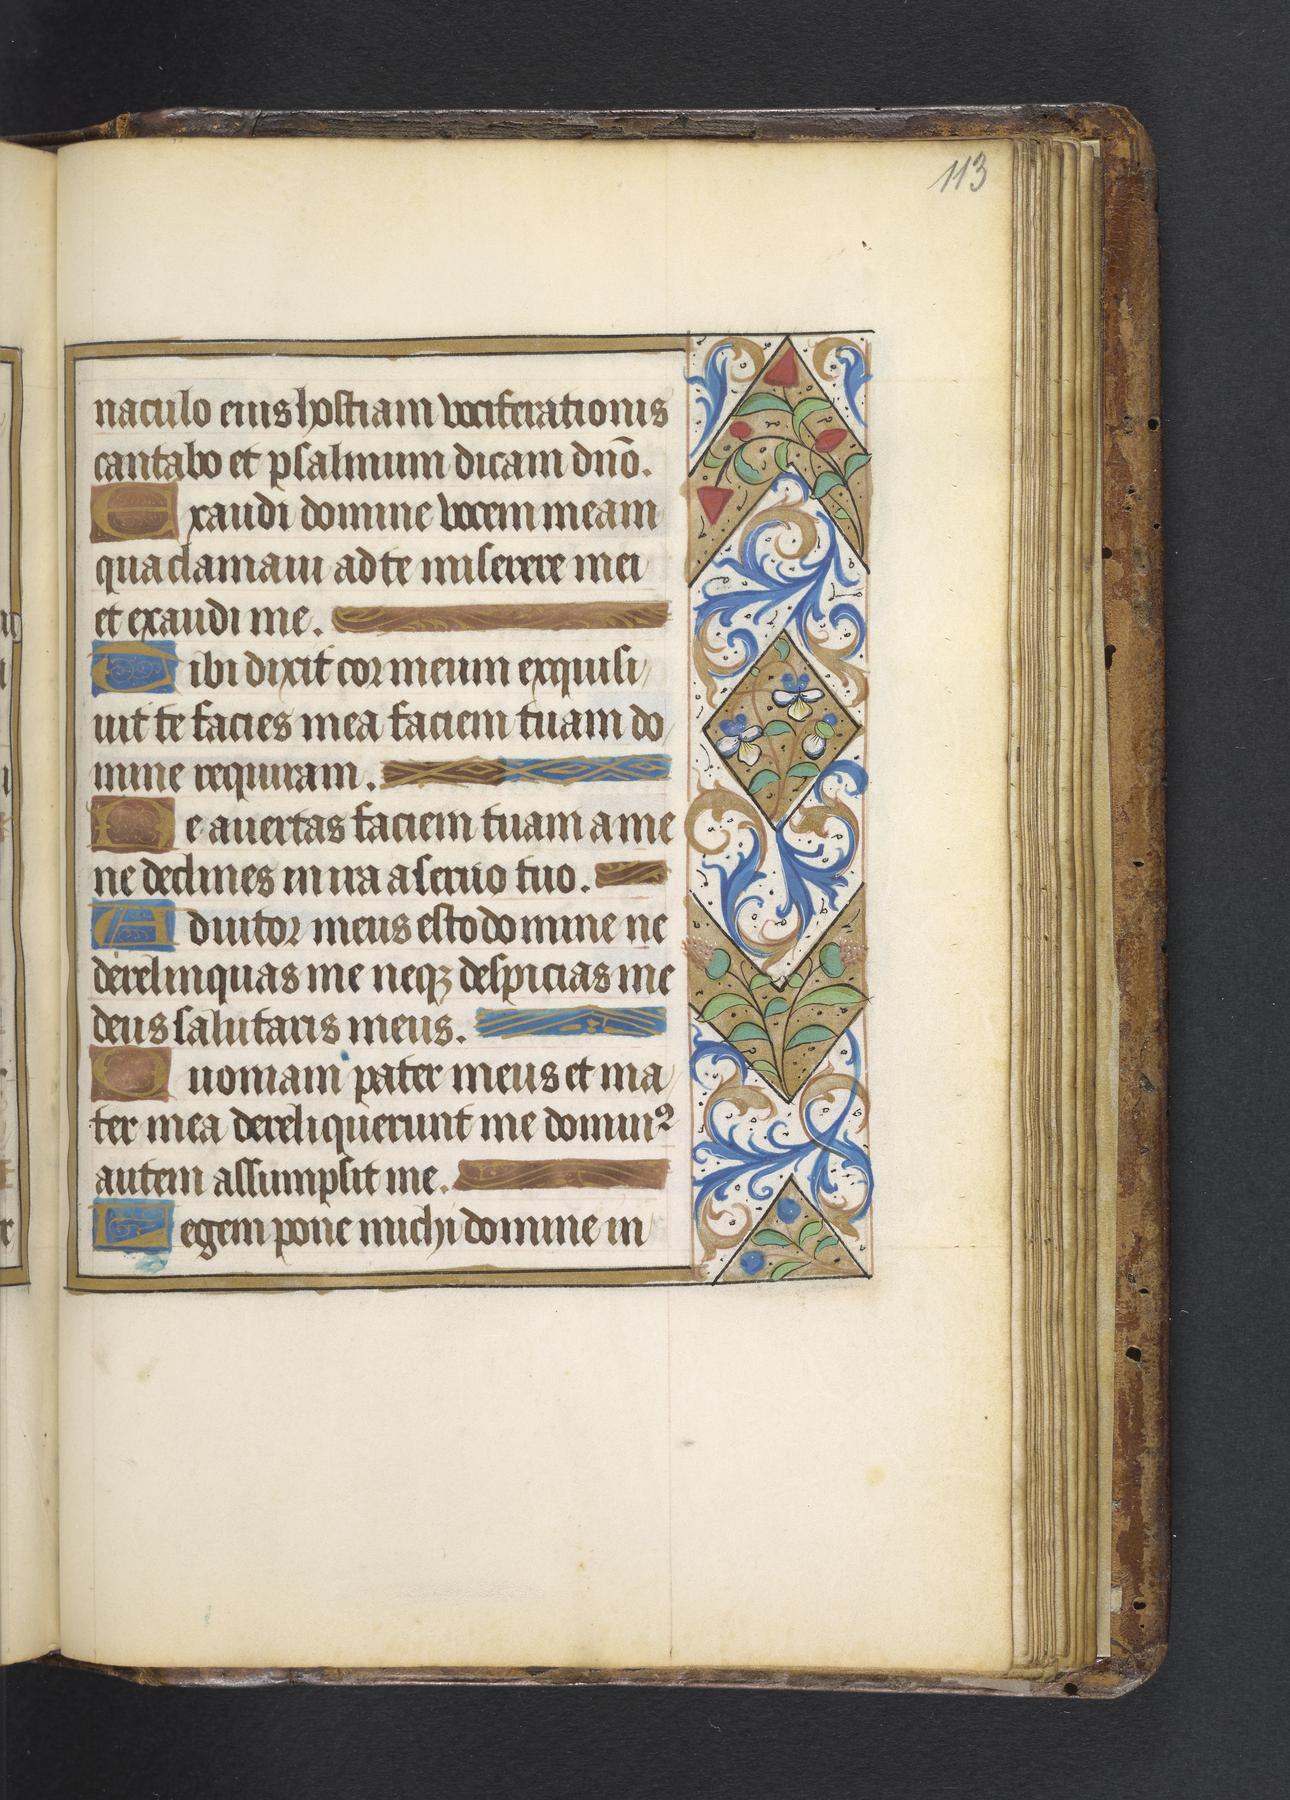 113
naculo eius hostiam vociferationis
cantabo et psalmum dicam dn̄o.
Exaudi domine vocem meam
qua clamaui ad te miserere mei
et exaudi me.
Tibi dixit cor meum exquisi
uit te facies mea faciem tuam do
mine requiram.
Ne auertas faciem tuam a me
ne declines in ira a seruo tuo.
Adiutor meus esto domine ne
derelinquas me neqꝫ despicias me
deus salutaris meus.
Quoniam pater meus et ma
ter mea dereliquerunt me dominꝰ
autem assumpsit me.
Legem pone michi domine in